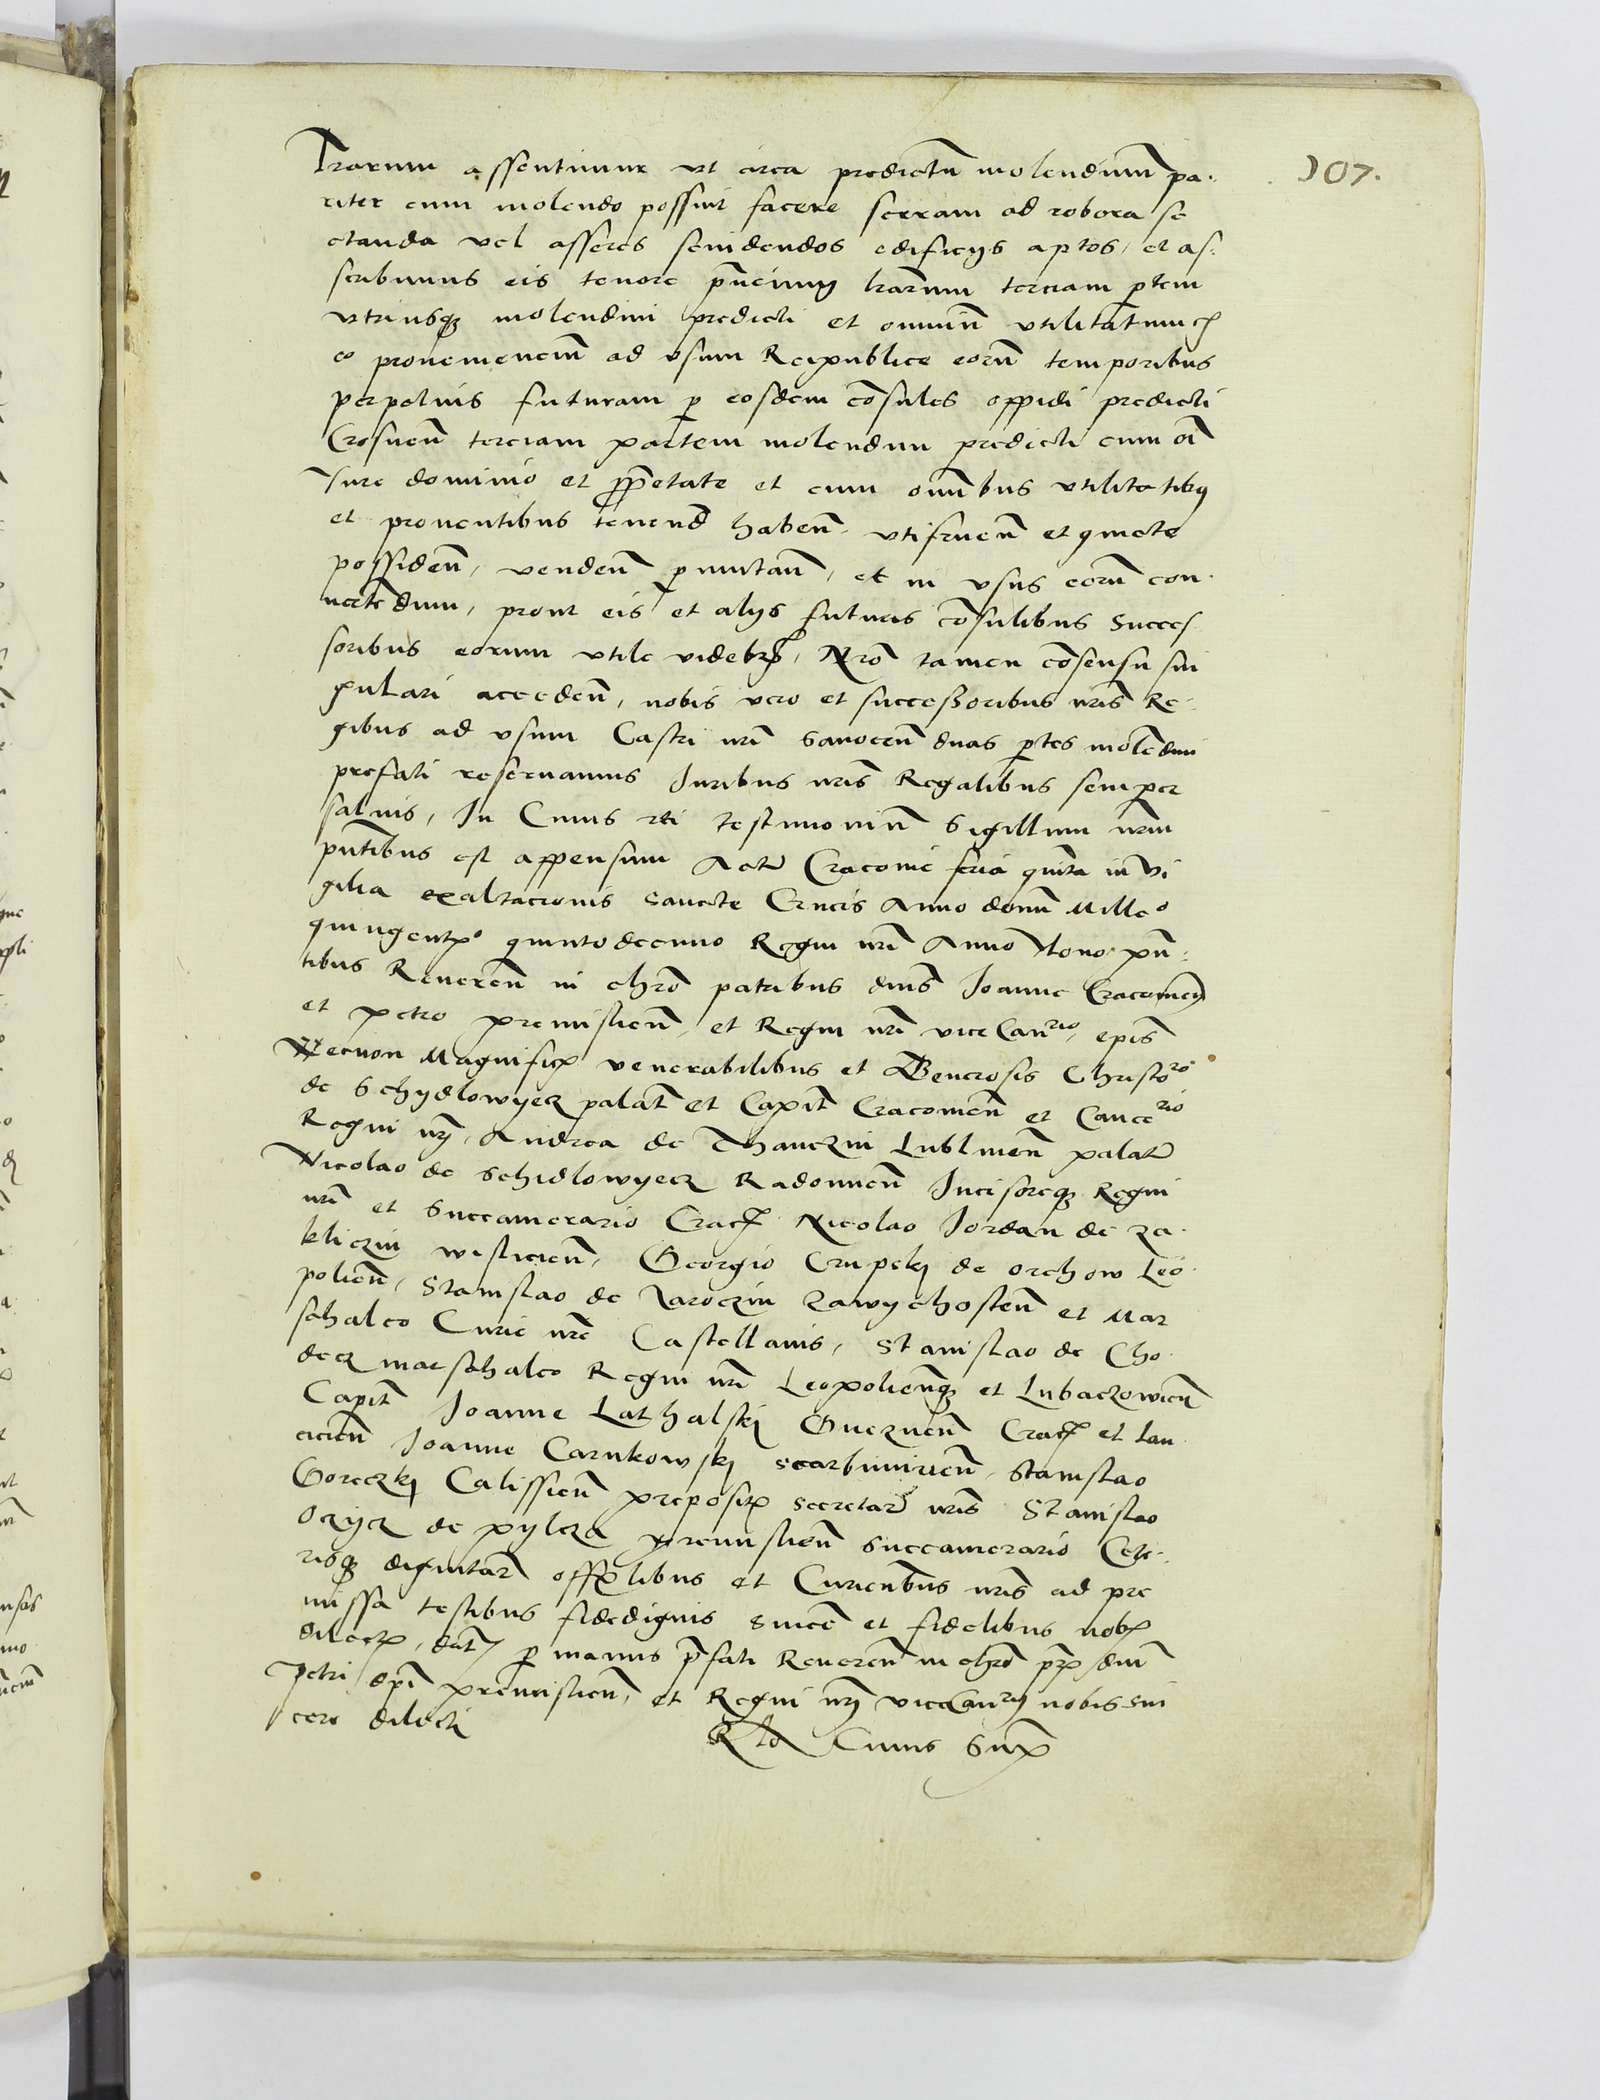 107.
Lrarum assentimur vt circa predictu molendinum pa.
riter cum molendo possint facere serram ad robora se
ctanda vel asseres scindendos edificijs aptos, et as.
scribimus eis tenore pncium lrarum terciam ptem
vtriusq molendini predicti et omniu vtilitatum ex
eo proueniencium ad vsum Reipublice eoru temporibus
perpetuis futuram p eosdem cosules oppidi predicti
Crosnen terciam partem molendini predicti cum oi
Jure dominio et pprietate et cum omnibus vtilitatibus
et prouentibus tenend haben. vtifruen et quiete
possiden, venden pmutan, et in vsus eoru con.
uertedum, prout eis et alijs futuris cosulibus succes
soribus eorum vtile videbr, Nro tamen cosensu sin
gulari acceden, nobis vero et successoribus nris Re.
gibus ad vsum Castri nri Sanocen duas ptes molendini
prefati reseruamus Juribus nris Regalibus semper
saluis, In Cuius rei testimoniu Sigillum nrm
pntibus est appensum Actu Cracouie feria quinta in Vi
gilia exaltacionis sancte Crucis Anno domi Milleo
quingentxo quintodecimo Regni nri Anno Nono pn
tibus Reueren in chro patribus dnis Joanne Cracouien
et petro premislien, et Regni nri viceCanrio, epis
Necnon Magnificx venerabilibus et Generosis Christoro
de Schydlowyecz palat et Capit Cracouien et Cancerio
Regni nri, Andrea de Thanczin Lublinen palat
Nicolao de Schidlowyecz Radomien Incisoreq Regni
nri et Succamerario Crac Nicolao Jordan de Za.
kliczin wislicien, Georgio Crupski de Orchow Leo.
polien, Stanislao de Jaroczin Zawychosten et Mar
schalco Curie nre Castellanis, Stanislao de Cho.
decz marschalco Regni nri Leopolienq et Lubaczowien
Capit Joanne Lathalski Gneznen Crac et Lan
cicien Joanne Carnkowski Scarbimirien, Stanislao
Goreczki Calissien prepositx secretar nris Stanislao
Ozijcz de pylcza premislien Succamerario Cete.
risq dignitar offxlibus et Curiensbus nris ad pre
missa testibus fidedignis since et fidelibus nobx
dilectx, dat p manus pfati Reueren in chro prx dni
Petri epi premislien, et Regni nri viceCanrij nobis sin
cere dilecti Rlo Cuius Supx